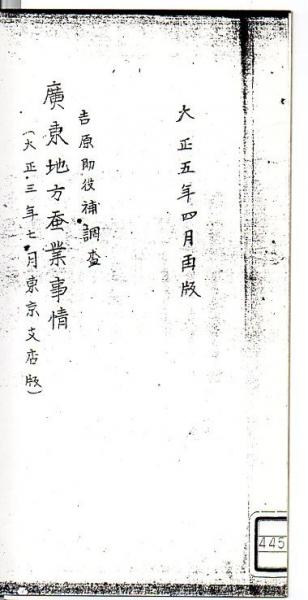 大正五年四月再版
吉原助役補調査
廣東地方蚕業事情
(大正三年七月東京支店版)
445